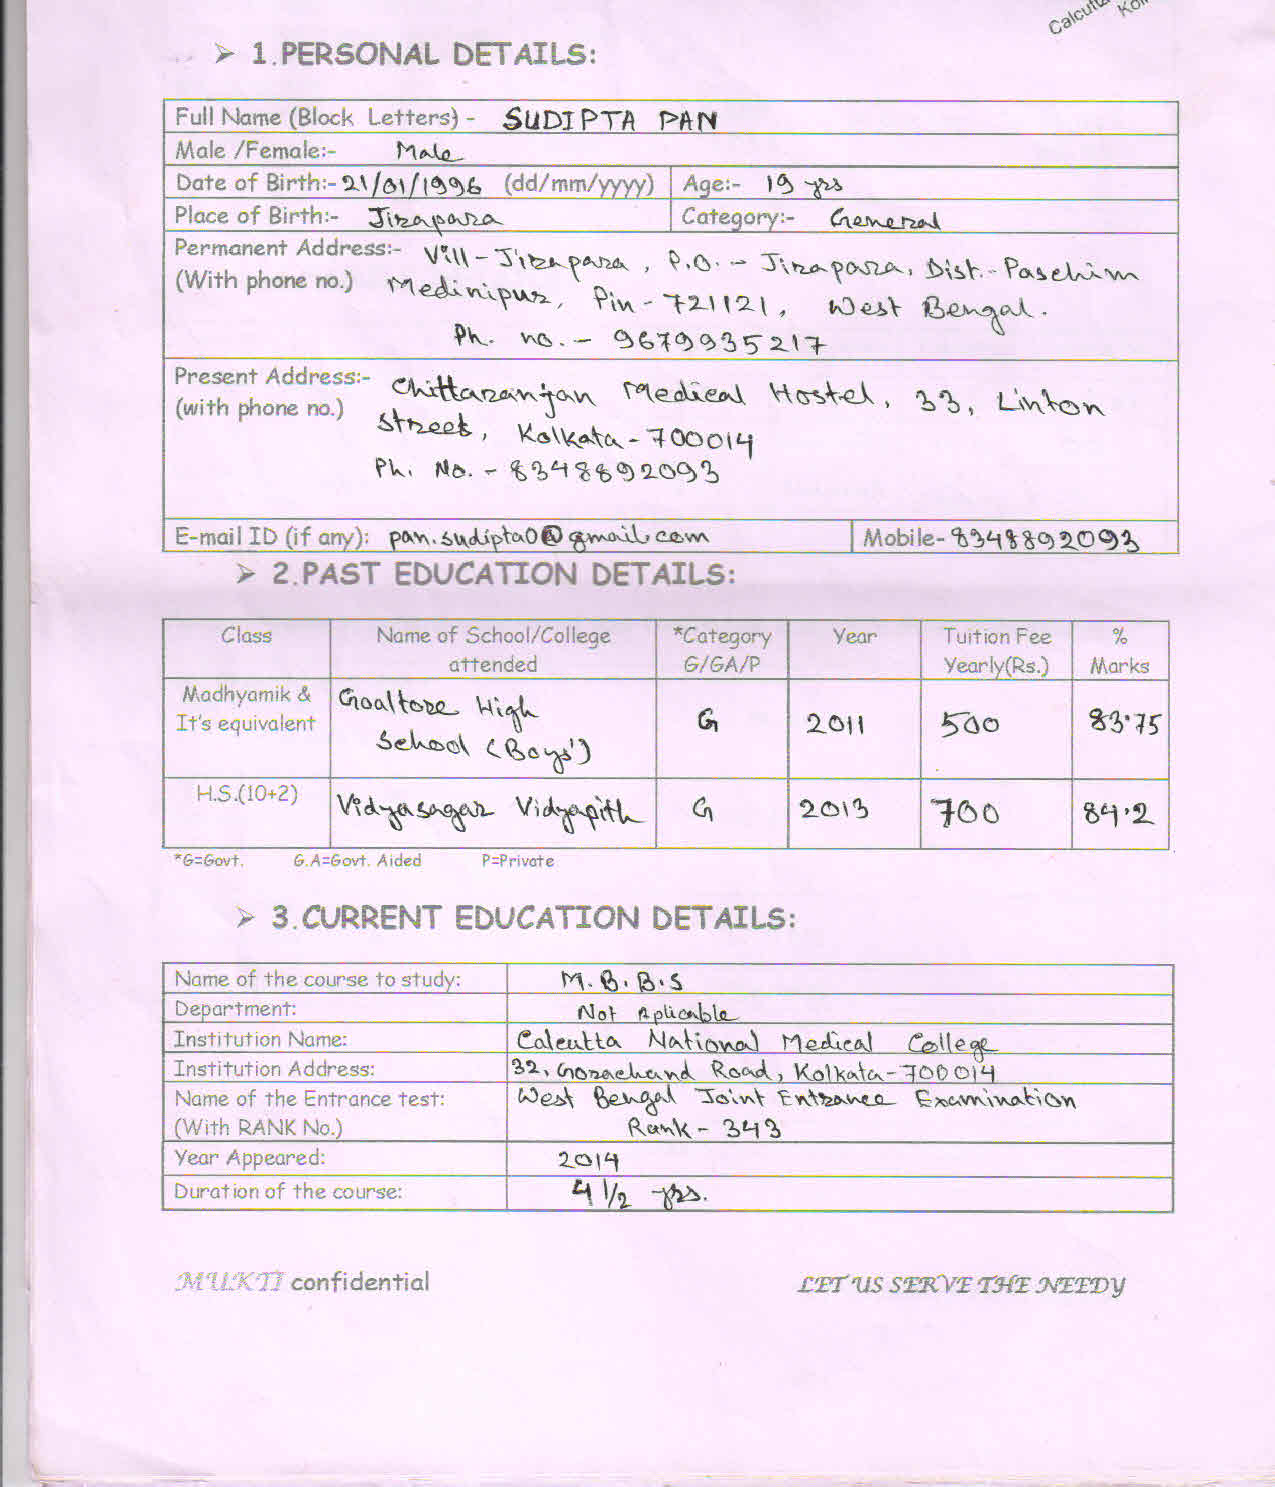 Calcutta
Kol
➢ 1.PERSONAL DETAILS:
Full Name (Block Letters) - SUDIPTA PAN
Male /Female:- Male
Date of Birth:- 21/01/1996 (dd/mm/yyyy) Age:- 19 yrs
Place of Birth:- Jirapara Category:- General
Permanent Address:- Vill - Jirapara, P.O. - Jirapara, Dist.- Paschim
(With phone no.) Medinipur, Pin - 721121, West Bengal.
Ph. no. - 9679935217
Present Address:- Chittaranjan Medical Hostel, 33, Linton
(with phone no.) Street, Kolkata - 700014
Ph. No. - 8348892093
E-mail ID (if any): pan.sudipta0@gmail.com Mobile- 8348892093
➢ 2.PAST EDUCATION DETAILS:
Class Name of School/College *Category Year Tuition Fee %
attended G/GA/P Yearly(Rs.) Marks
Madhyamik & Goaltore High G 2011 500 83.75
It's equivalent School (Boys')
H.S.(10+2) Vidyasagar Vidyapith G 2013 700 84.2
*G=Govt. G.A=Govt. Aided P=Private
➢ 3.CURRENT EDUCATION DETAILS:
Name of the course to study: M.B.B.S
Department: Not Aplicable
Institution Name: Calcutta National Medical College
Institution Address: 32, Gorachand Road, Kolkata - 700014
Name of the Entrance test: West Bengal Joint Entrance Examination
(With RANK No.) Rank - 343
Year Appeared: 2014
Duration of the course: 4 1/2 yrs.
MUKTI confidential LET US SERVE THE NEEDY